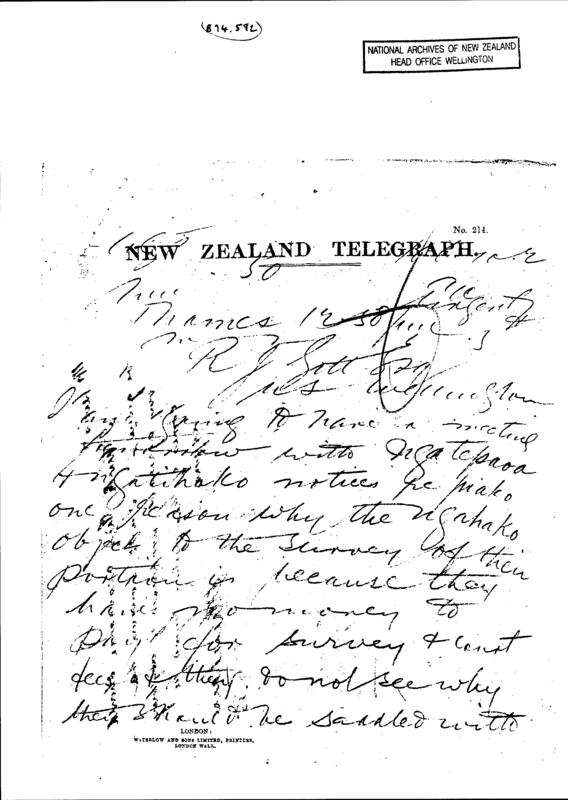 (874.592)
NATIONAL ARCHIVES OF NEW ZEALAND
HEAD OFFICE WELLINGTON
No. 214.
NEW ZEALAND TELEGRAPH.
50
Thames 12 30 pm
Urgent
R J Gill Esq
Wellington
I am going to have a meeting
tomorrow with Ngatepaoa
& Ngatihako notices re piako
one reason why the Ngahako
object to the survey of their
portion is because they
have no money to
pay for survey & court
fees & they do not see why
they should be saddled with
LONDON:
WATERLOW AND SONS LIMITED, PRINTERS,
LONDON WALL.